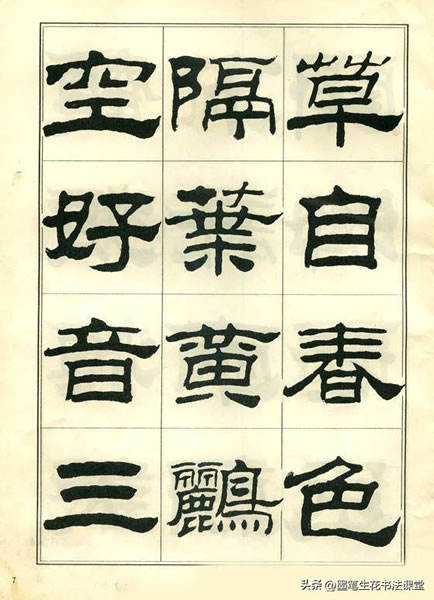 草自春色
隔葉黃鸝
空好音三
7
头条@墨笔生花书法课堂